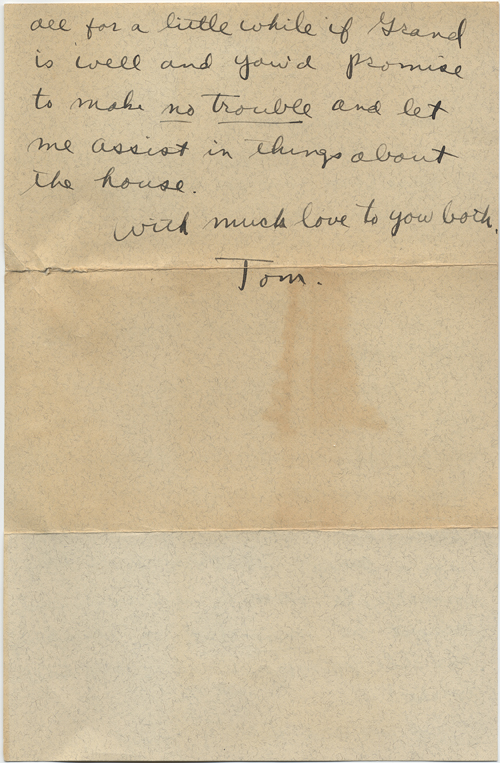 all for a little while if Grand
is well and you'd promise
to make no trouble and let
me assist in things about
the house.
With much love to you both,
Tom.